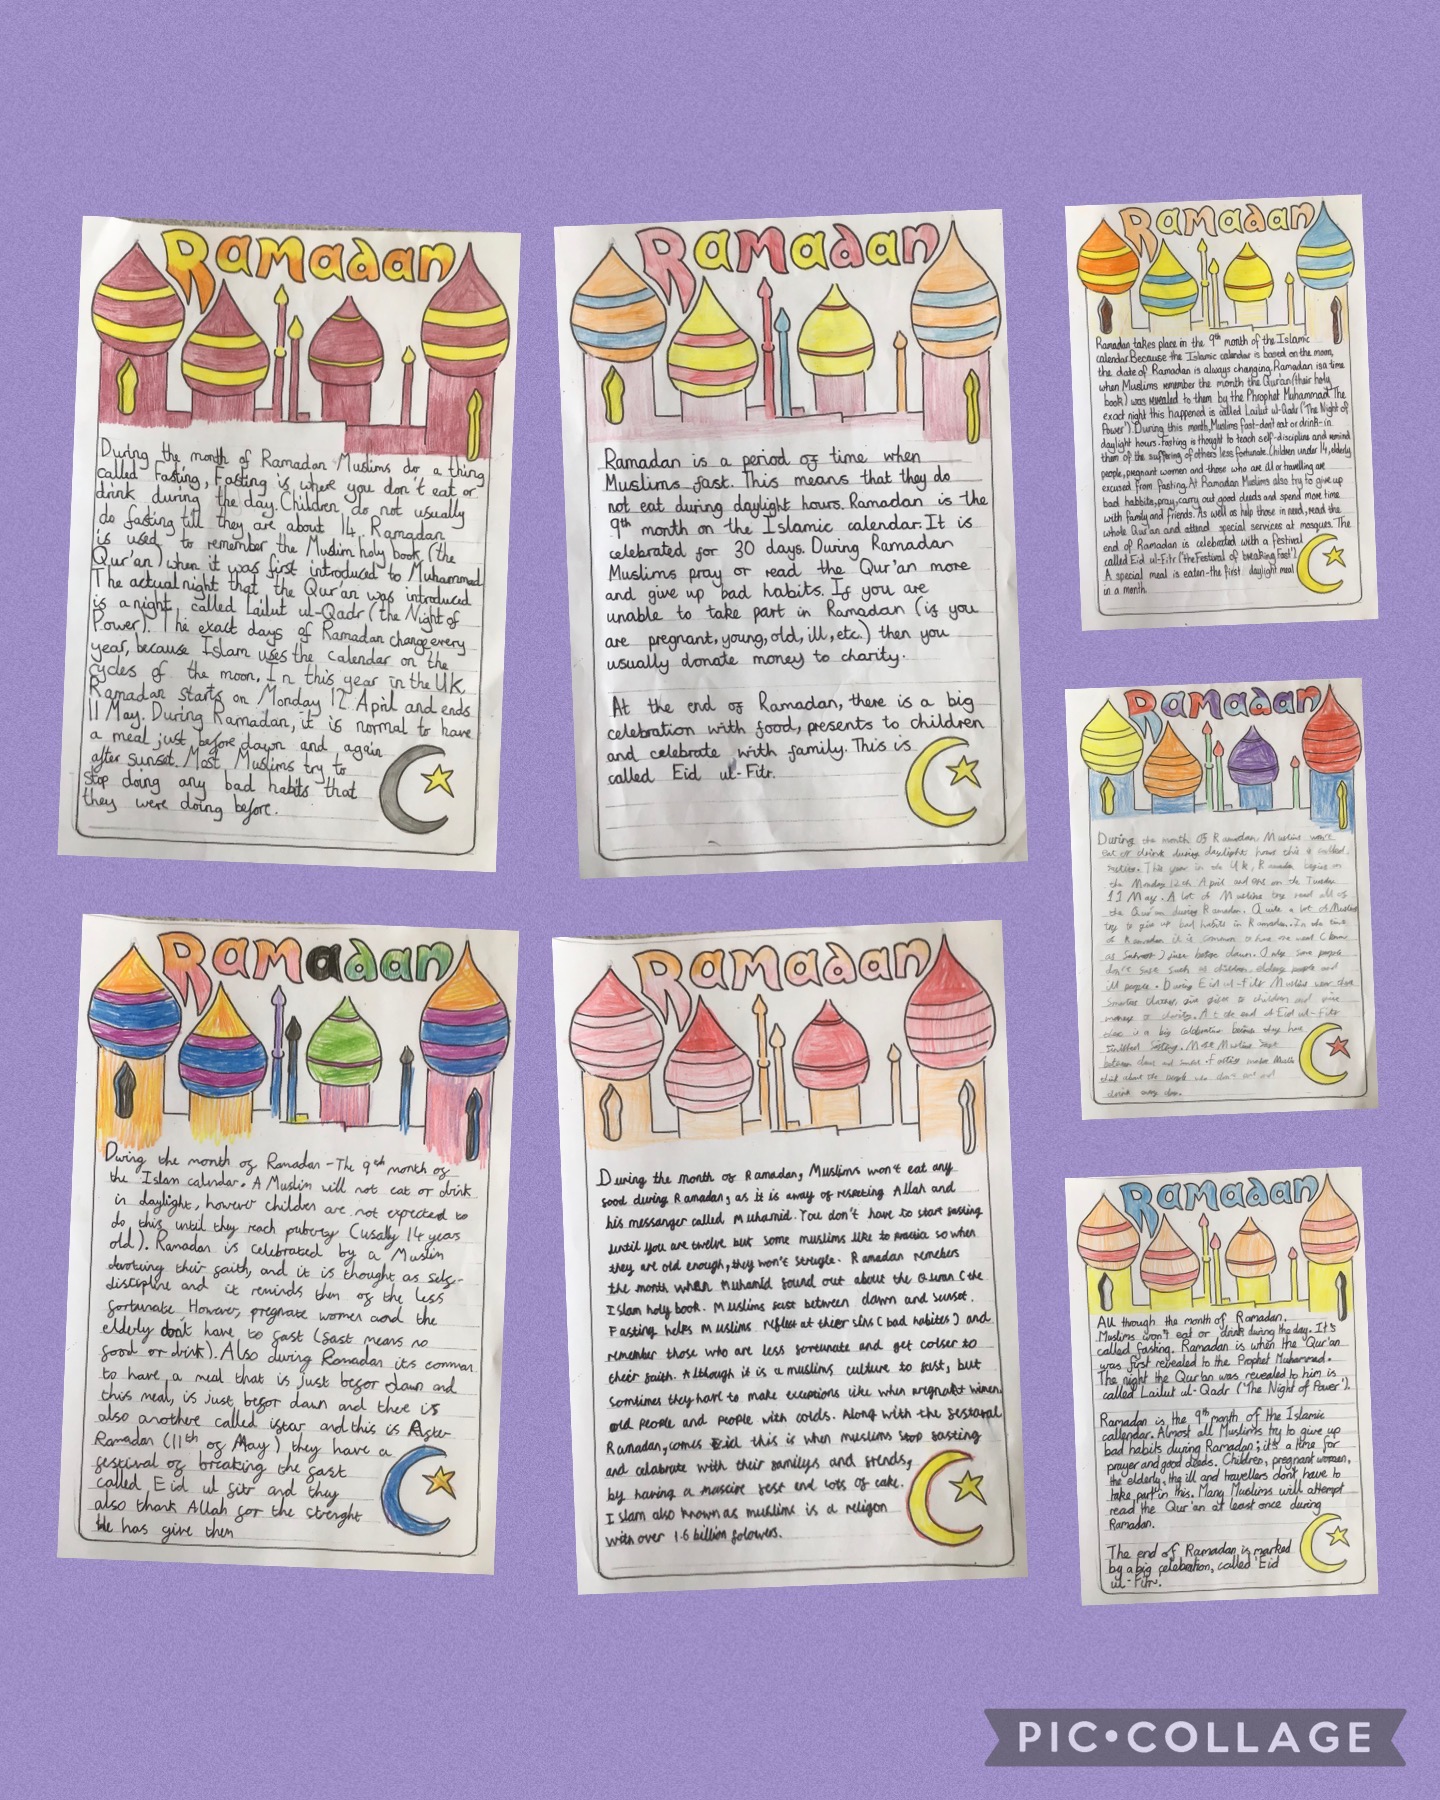 Ramadan
During the month of Ramadan Muslims do a thing
called Fasting, Fasting is where you don't eat or
drink during the day. Children do not usually
do fasting till they are about 14. Ramadan
is used to remember the Muslim holy book (the
Qur'an) when it was first introduced to Muhammad
The actual night that the Qur'an was introduced
is a night called Lailut ul-Qadr (the Night of
Power). The exact days of Ramadan change every
year, because Islam uses the calendar on the
cycles of the moon. In this year in the UK,
Ramadan starts on Monday 12 April and ends
11 May. During Ramadan, it is normal to have
a meal just before dawn and again
after sunset. Most Muslims try to
stop doing any bad habits that
they were doing before.
Ramadan
Ramadan is a period of time when
Muslims fast. This means that they do
not eat during daylight hours. Ramadan is the
9th month on the Islamic calendar. It is
celebrated for 30 days. During Ramadan
Muslims pray or read the Qur'an more
and give up bad habits. If you are
unable to take part in Ramadan (if you
are pregnant, young, old, ill, etc.) then you
usually donate money to charity.
At the end of Ramadan, there is a big
celebration with food, presents to children
and celebrate with family. This is
called Eid ul-Fitr.
Ramadan
Ramadan takes place in the 9th month of the Islamic
calendar. Because the Islamic calendar is based on the moon,
the date of Ramadan is always changing. Ramadan is a time
when Muslims remember the month the Qur'an (their holy
book) was revealed to them by the Phrophet Muhammad. The
exact night this happened is called Lailut ul-Qadr ('The Night of
Power'). During this month, Muslims fast-don't eat or drink-in
daylight hours. Fasting is thought to teach self-discipline and remind
them of the suffering of others less fortunate. Children under 14, elderly
people, pregnant women and those who are ill or travelling are
excused from fasting. At Ramadan Muslims also try to give up
bad habbits, pray, carry out good deeds and spend more time
with family and friends. As well as help those in need, read the
whole Qur'an and attend special services at mosques. The
end of Ramadan is celebrated with a festival
called Eid ul-Fitr ('the Festival of breaking Fast').
A special meal is eaten-the first daylight meal
in a month.
Ramadan
During the month Of Ramadan Muslims won't
eat or drink during daylight hours this is called
This year in the UK, begins on
the Monday 12th April and on the
11 May. A lot of Muslims read all of
the Qur'an during Ramadan. Quite a lot of Muslims
try to give up bad habits in Ramadan. In the time
of Ramadan it is common to have one meal
as before dawn. some people
don't such as children, elderly people and
ill people. During Eid ul-fitr Muslims wear their
clothes, give to children and give
money to charity. At the end of Eid ul-fitr
is a big celebration because they have
finished fasting. Most Muslims fast
between dawn and sunset.
think about the people who don't eat and
drink every day.
Ramadan
During the month of Ramadan - The 9th month of
the Islam calendar. A Muslim will not eat or drink
in daylight, however children are not expected to
do this until they reach puberty (usally 14 years
old). Ramadan is celebrated by a Muslim
devouting their faith, and it is thought as self-
discipline and it reminds them of the less
fortunate. However, pregnate women and the
elderly don't have to fast (fast means no
food or drink). Also during Ramadan its comman
to have a meal that is just befor dawn and
this meal, is just befor dawn and there is
also anothere called istar and this is After
Ramadan (11th of May) they have a
festival of breaking the fast
called Eid ul fitr and they
also thank Allah for the strenght
He has give them
Ramadan
During the month of Ramadan, Muslims won't eat any
food during Ramadan, as it is away of respecting Allah and
his messanger called Muhamid. You don't have to start fasting
until you are twelve but some muslims like to practice so when
they are old enough, they won't strugle. Ramadan remebers
the month when Muhamid found out about the Quran (the
Islam holy book. Muslims fast between dawn and sunset.
Fasting helps Muslims reflect at thier sins (bad habites) and
remember those who are less fortunate and get colser to
their faith. Although it is a muslims culture to fast, but
somtimes they have to make exceptions like when pregnant women,
old people and people with colds. Along with the festaval
Ramadan, comes Eid this is when muslims stop fasting
and calabrate with their familys and frends,
by having a massive fest end lots of cake.
Islam also known as muslims is a religon
with over 1.6 billion folowers.
Ramadan
All through the month of Ramadan.
Muslims won't eat or drink during the day. It's
called fasting. Ramadan is when the Qur'an
was first revealed to the Prophet Muhammed.
The night the Qur'an was revealed to him is
called Lailut ul-Qadr ('The Night of Power').
Ramadan is the 9th month of the Islamic
callendar. Almost all Muslims try to give up
bad habits during Ramadan; it's a time for
prayer and good deeds. Children, pregnant women,
the elderly, the ill and travellers don't have to
take part in this. Many Muslims will attempt
read the Qur'an at least once during
Ramadan.
The end of Ramadan is marked
by a big celebration, called 'Eid
ul-Fitr.
PIC•COLLAGE